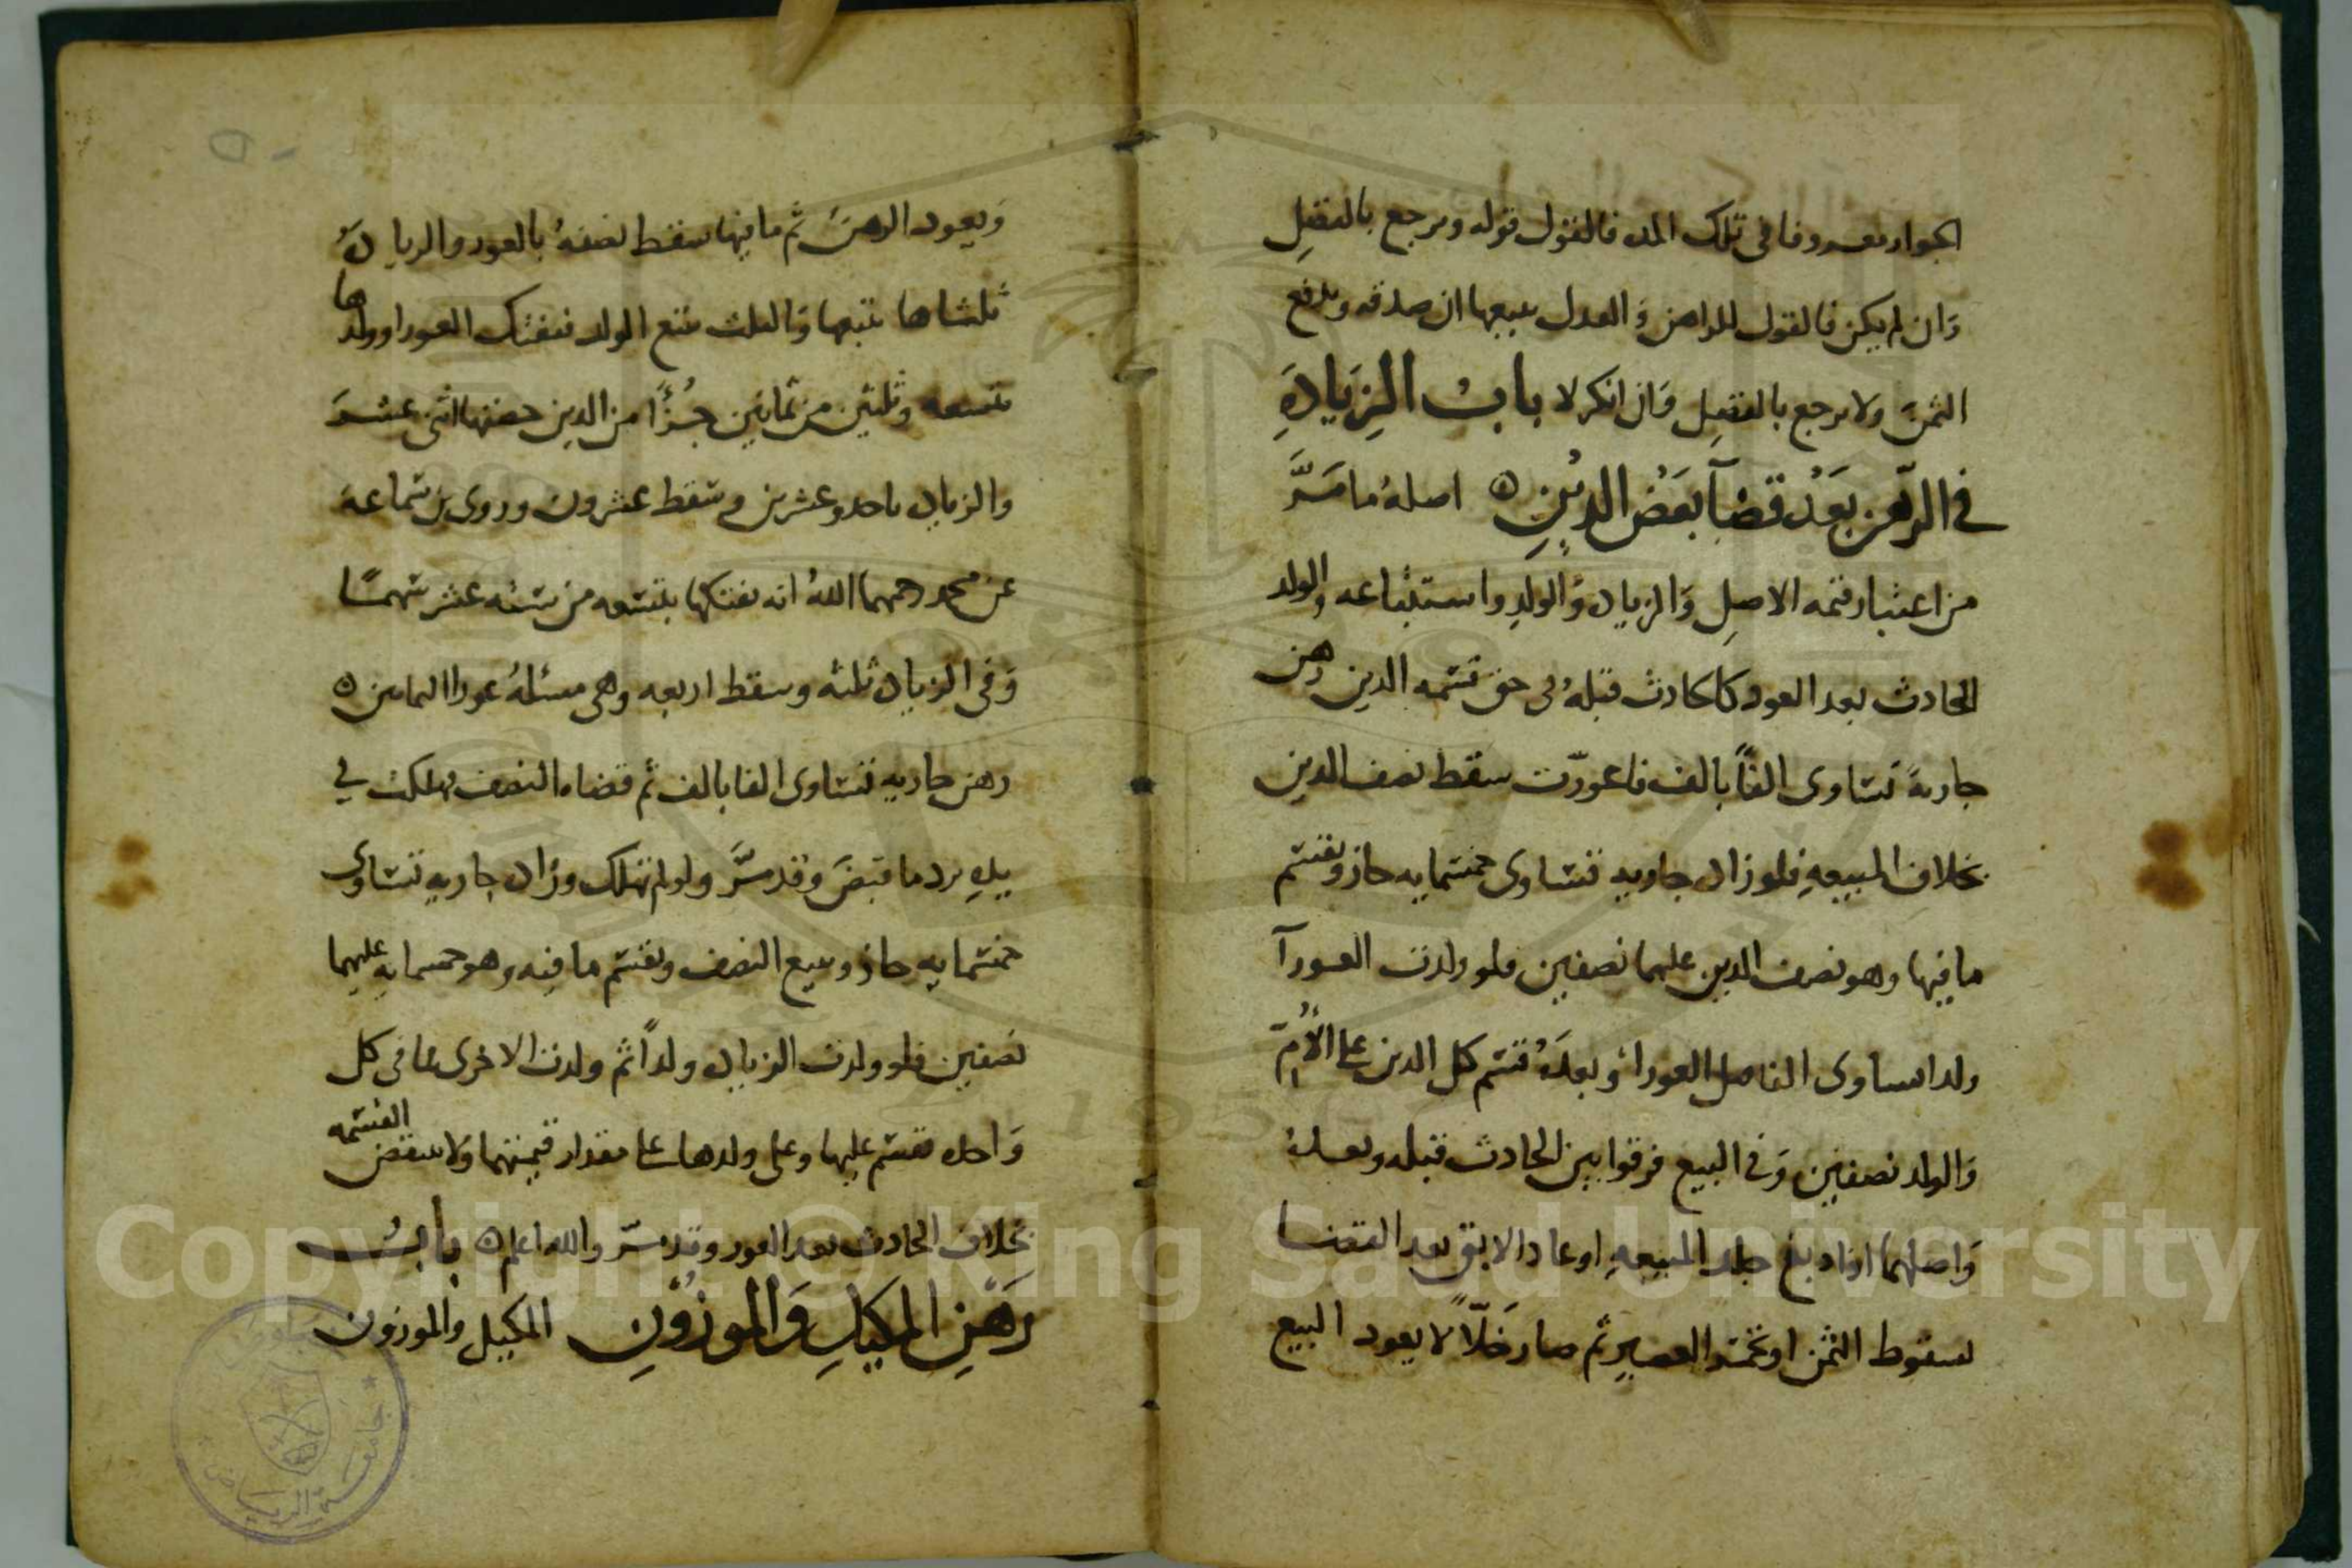 الجوار معروفا في تلك المده فالقول قوله ويرجع بالفضل
وَان لم يكن فالقول للراهن وَالعدل يبيعها ان صدقه ويدفع
الثمنَ وَلا يرجع بالفضلِ وَان انكر لا بابُ الزِيَادَةِ
في الرّهن بَعْد قضآ بَعَضْ الدیْنِ ه اصلهُ ما مَرَّ
من اعتبار قيمه الاصلِ وَالزياده وَالولدِ واستتباعه والولد
الحادث بعد العور كالحادث قبلهُ في حق قسمه الدين رهن
جاريهً تساوى الفاً بالف فاعورّت سقط نصف الدين
بخلاف المبيعهِ فلو زاد جاريه تساوى خمسمايه جاز ويقسم
ما فيها وهو نصف الدين عليهما نصفين فلو ولدت العورآ
ولدا يساوى الفا صل العورا وَبعدَهُ قسم كل الدين على الأُمّ
وَالولد نصفين وَفى البيع فرقوا بين الحادث قبله وبعدهُ
وَاصلهما اذا دبغ جلد المبيعهِ او عاد الابق بعد القضا
بسقوط الثمن او تخمّر العصير ثم صار خَلّاً لا يعود البيع
وَيعود الرهنَ ثم ما فيها سقط نصفهُ بالعور والزيادهُ
ثلثاها يتبعها وَالثلث يتبع الولد فتفتك العورا وولدها
بتسعه وثلثين من ثمانين جُزْأً من الدين حصتها اثنى عشرَ
والزياده باحد وعشرين وسقط عشرون وروى بن سَماعهَ
عن محمد رحمهما اللهُ انه يفتكها بتسعه من سته عشر سَهمًا
وَفى الزياده ثلثه وسقط اربعه وهى مسئلهُ عورا اليمامين ه
رهن جاريه تساوى الفا بالف ثم قضاه النصف فهلكت في
يدِهِ يرد ما قبضَ وقد مرَّ ولو لم تهلك وزاد جاريه تساوى
خمسمايه جاز ويبيع النصف ويقسم ما فيه وهو خمسمايهِ عليهما
نصفين فلو ولدت الزياده ولداً ثم ولدت الاخرى فما فى كل
وَاحده يقسم عليها وعلى ولدها على مقدار قيمتهما وَلا ينتقض القسمه
بخلاف الحادث بعد العور وقد مرّ والله اعلم ه بابُ
رَهْنِ المكيلِ وَالموزُوْنِ المكيل والموزون
جامعة الرياض
Copyright © King Saud University
1957